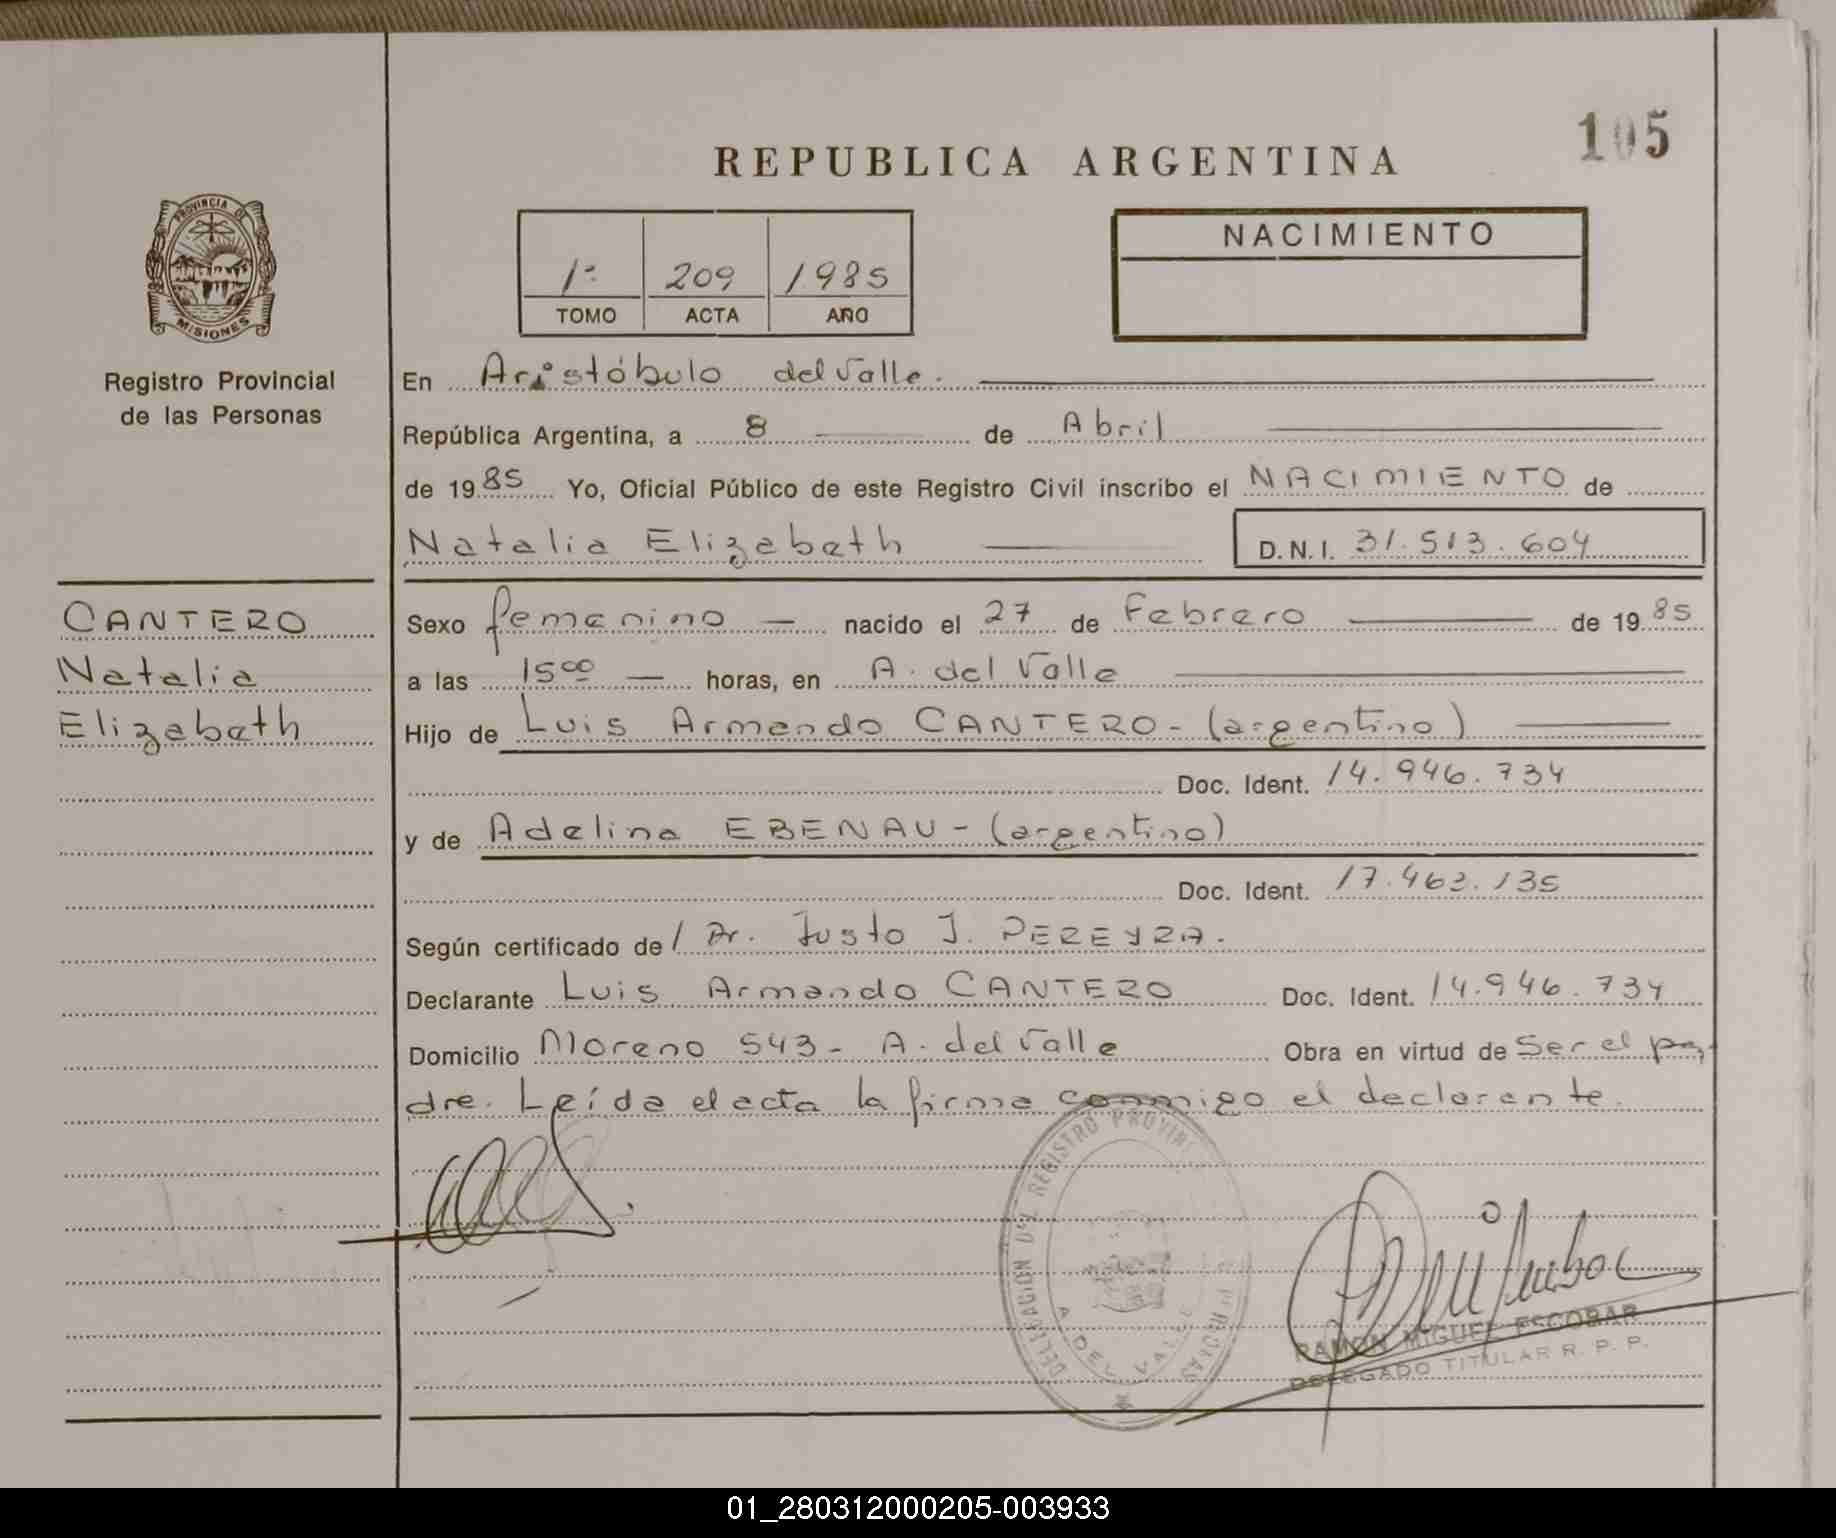 105
REPUBLICA ARGENTINA
PROVINCIA DE
MISIONES
Registro Provincial
de las Personas
1º 209 1985
TOMO ACTA AÑO
NACIMIENTO
En Aristóbulo del Valle.
República Argentina, a 8 de Abril
de 1985 Yo, Oficial Público de este Registro Civil inscribo el NACIMIENTO de
Natalia Elizabeth D.N.I. 31.513.604
CANTERO
Natalia
Elizabeth
Sexo femenino — nacido el 27 de Febrero de 1985
a las 1500 — horas, en A. del Valle
Hijo de Luis Armando CANTERO - (argentino)
Doc. Ident. 14.946.734
y de Adelina EBENAU - (argentino)
Doc. Ident. 17.463.135
Según certificado de / Dr. Justo J. PEREYRA.
Declarante Luis Armando CANTERO Doc. Ident. 14.946.734
Domicilio Moreno 543 - A. del Valle Obra en virtud de Ser el pa-
dre. Leída el acta la firma conmigo el declarante.
DELEGACION DEL REGISTRO PROVINCIAL
A. DEL VALLE
RAMON MIGUEL ESCOBAR
DELEGADO TITULAR R. P. P.
01_280312000205-003933